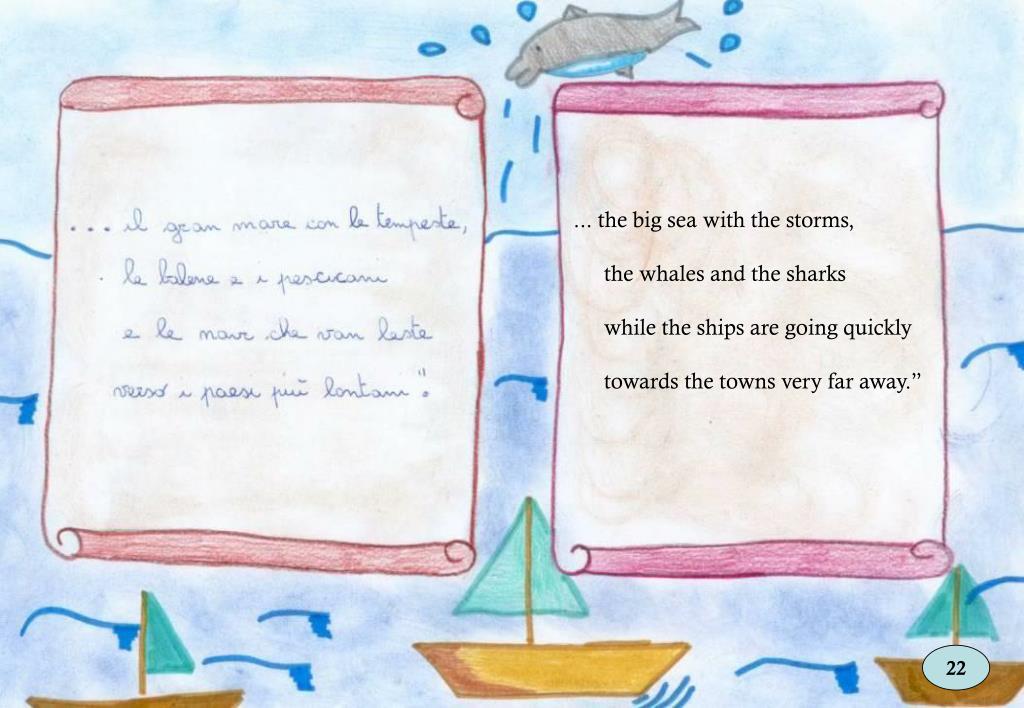 ... il gran mare con le tempeste,
le balene e i pescicani
e le navi che van leste
verso i paesi più lontani".
... the big sea with the storms,
the whales and the sharks
while the ships are going quickly
towards the towns very far away.”
22